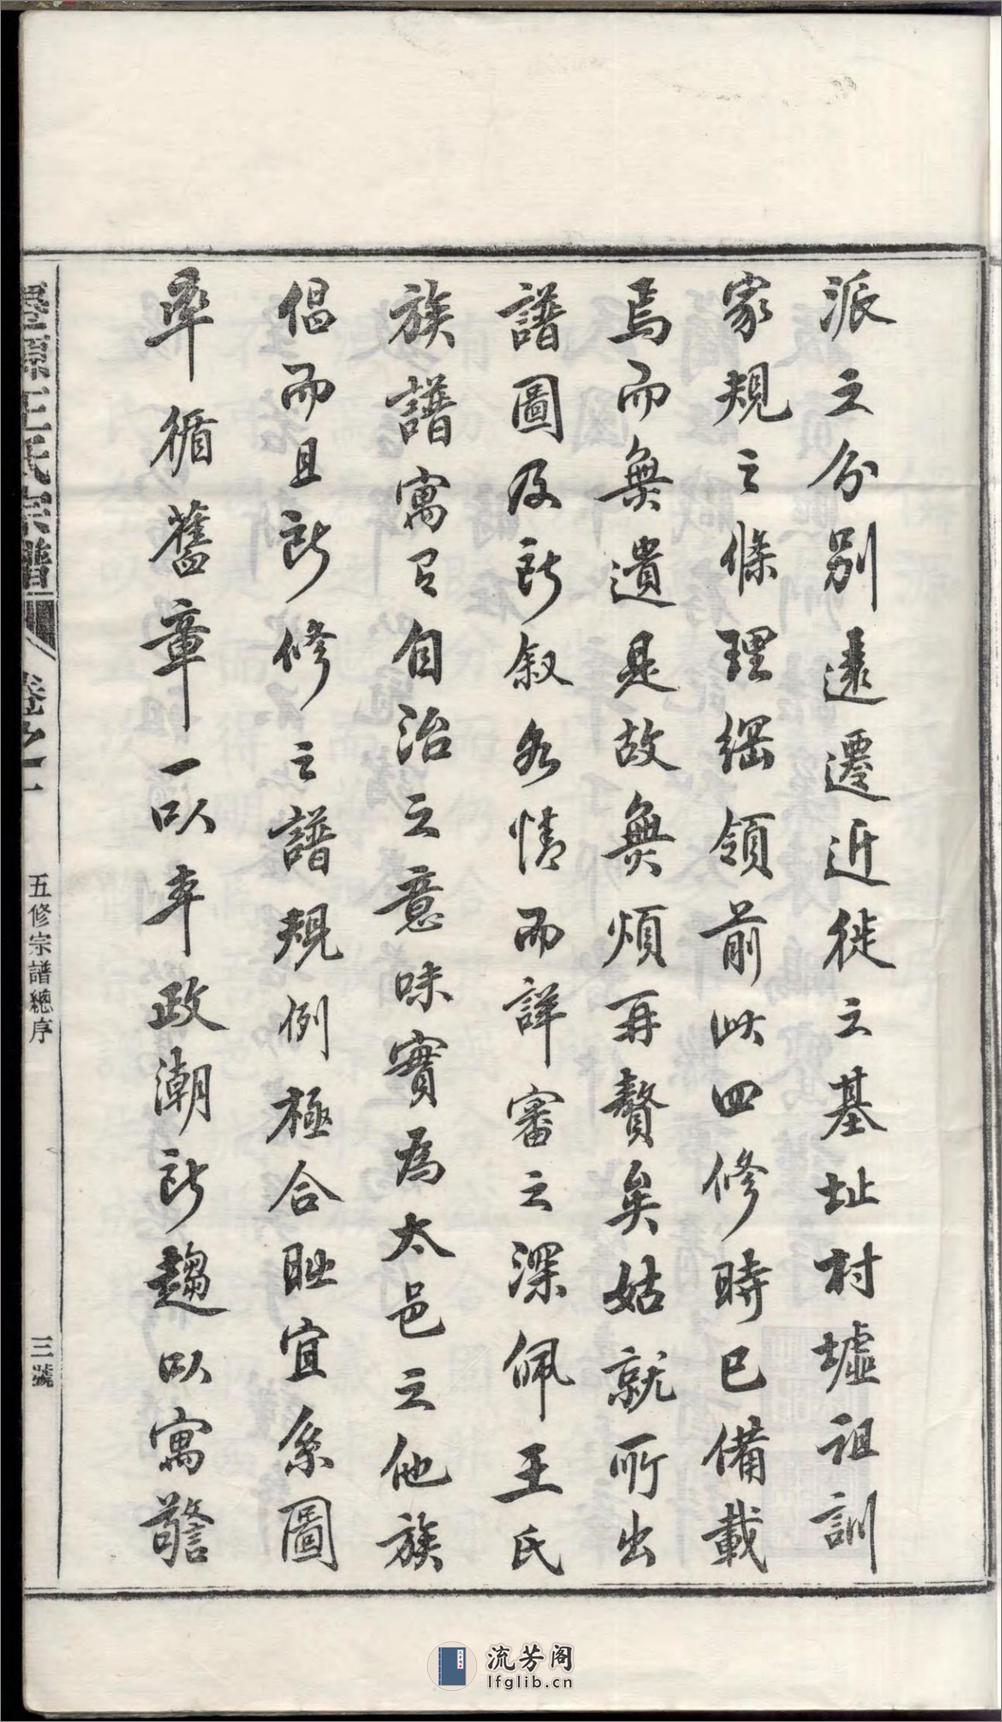 派之分別遠遷近徙之基址村墟祖訓
家規之條理綱領前此四修時已備載
焉而無遺是故無煩再贅矣姑就所出
譜圖及所叙各情而詳審之深佩王氏
族譜寓有自治之意味實為太邑之他族
倡而且所修之譜規例極合時宜系圖
率循舊章一以率政潮所趨以寓警
源王氏宗譜
卷之一
五修宗譜總序
三號
流芳阁
lfglib.cn